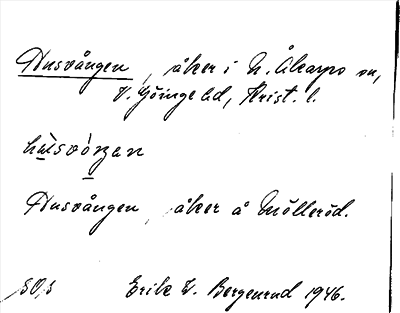 Husvången, åker i N. Åkarps sn,
V. Göinge hd, Krist. l.
Husvången, åker å Mölleröd.
Erik V. Bergenrud 1946.